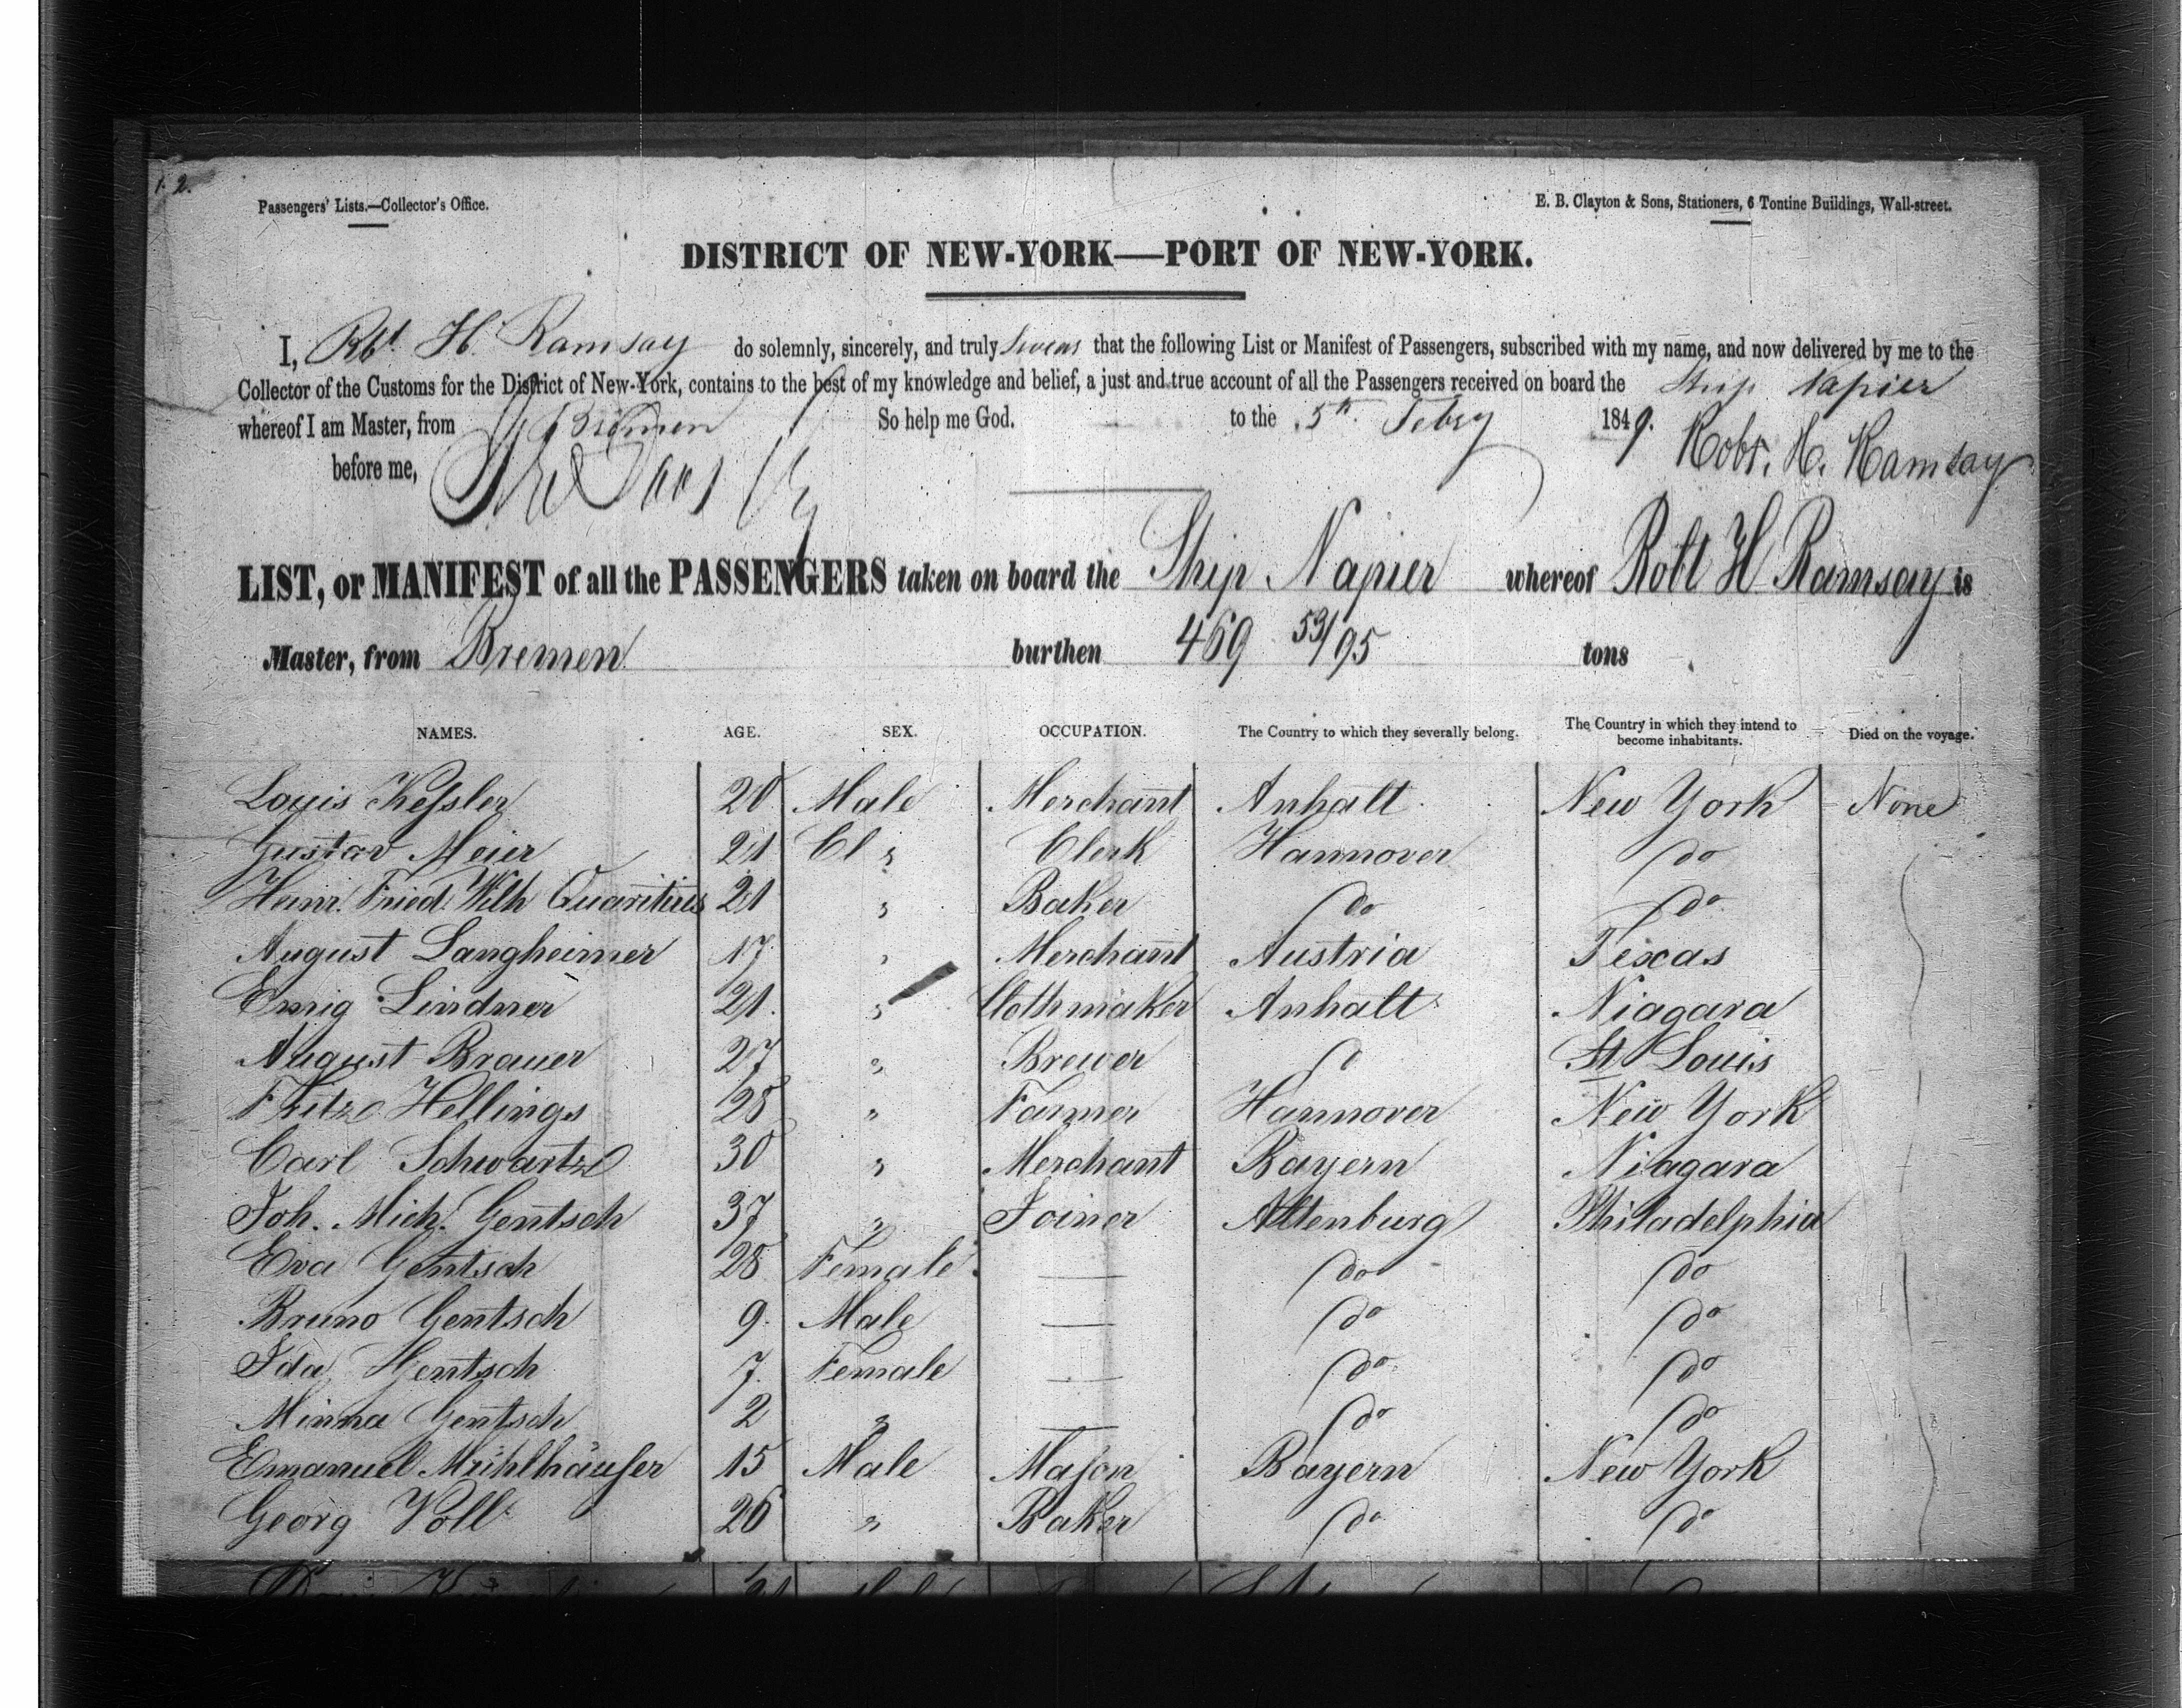 1.2.
Passengers' Lists.—Collector's Office.
E. B. Clayton & Sons, Stationers, 6 Tontine Buildings, Wall-street.
DISTRICT OF NEW-YORK—PORT OF NEW-YORK.
I, Robt. H. Ramsay do solemnly, sincerely, and truly swear that the following List or Manifest of Passengers, subscribed with my name, and now delivered by me to the
Collector of the Customs for the District of New-York, contains to the best of my knowledge and belief, a just and true account of all the Passengers received on board the Ship Napier
whereof I am Master, from Bremen So help me God. to the 5th Febry 1849. Robt. H. Ramsay
before me,
LIST, or MANIFEST of all the PASSENGERS taken on board the Ship Napier whereof Robt H Ramsay is
Master, from Bremen burthen 469 53/95 tons
NAMES. AGE. SEX. OCCUPATION. The Country to which they severally belong. The Country in which they intend to become inhabitants. Died on the voyage.
Louis Keſsler 20 Male Merchant Anhalt New York None
Gustav Meier 21 Cl " Clerk Hannover do
Heinr. Fried. Wilh Quaritius 21 " Baker do do
August Langheimer 17 " Merchant Austria Texas
Emig Lindner 21. " Clothmaker Anhalt Niagara
August Brauer 27 " Brewer do St Louis
Fritze Hellings 28 " Farmer Hannover New York
Carl Schwartze 30 " Merchant Bayern Niagara
Joh. Mich. Gentsch 37 " Joiner Altenburg Philadelphia
Eva Gentsch 28 Female — do do
Bruno Gentsch 9. Male — do do
Ida Hentsch 7. Female — do do
Minna Gentsch 2 " — do do
Emanuel Mühlhäuſer 15 Male Maſon Bayern New York
Georg Voll 26 " Baker do do